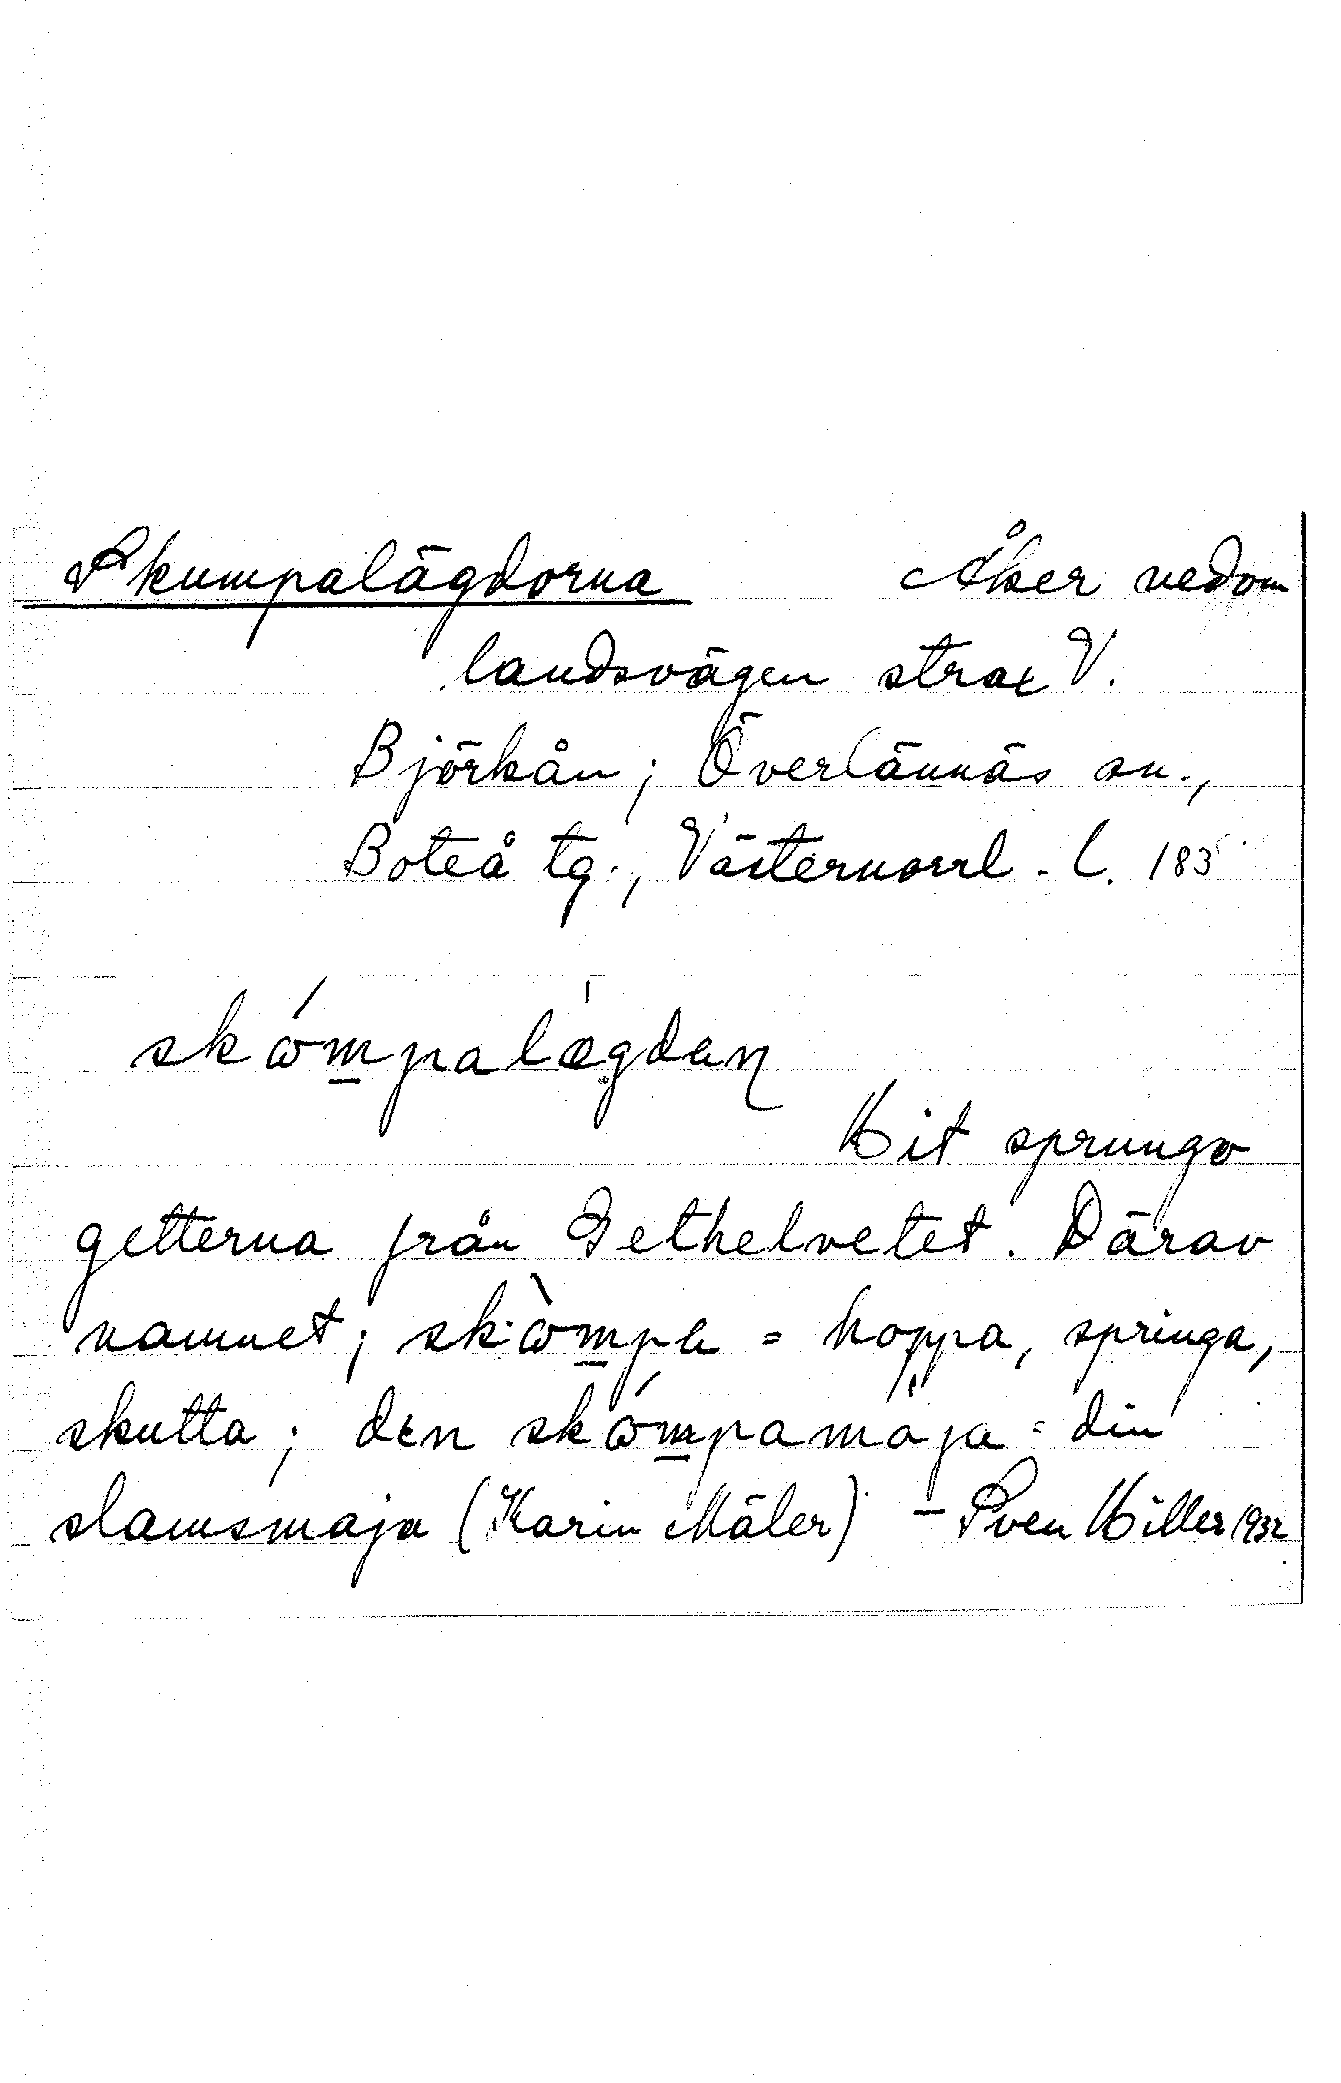 Skumpalägdorna Åker nedom
landsvägen strax V.
Björkån; Överlännäs sn.,
Boteå tg., Västernorrl. l. 183
skómpalægdan
Hit sprungo
getterna från Gethelvetet. Därav
namnet; skòmpa = hoppa, springa,
skutta; den skómpamaja = din
slamsmaja (Karin Mäler) – Sven Hiller 1932